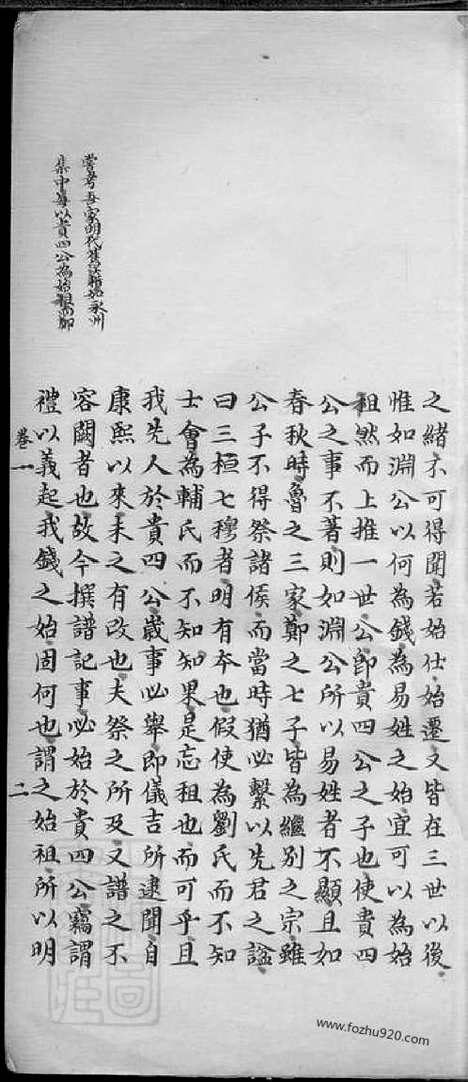 之緒不可得聞若始仕始遷又皆在三世以後
惟如淵公以何為錢為易姓之始宜可以為始
祖然而上推一世公即貴四公之子也使貴四
公之事不著則如淵公所以易姓者不顯且如
春秋時魯之三家鄭之七子皆為繼別之宗雖
公子不得祭諸侯而當時猶必繫以先君之諡
曰三桓七穆者明有本也假使為劉氏而不知
士會為輔氏而不知知果是忘祖也而可乎且
我先人於貴四公歲事必舉即儀吉所逮聞自
康熙以來未之有改也夫祭之所及又譜之不
容闕者也故今撰譜記事必始於貴四公竊謂
禮以義起我錢之始固何也謂之始祖所以明
卷一 二
嘗考吾家明代舊譜
集中每以貴四公為始祖
www.fozhu920.com